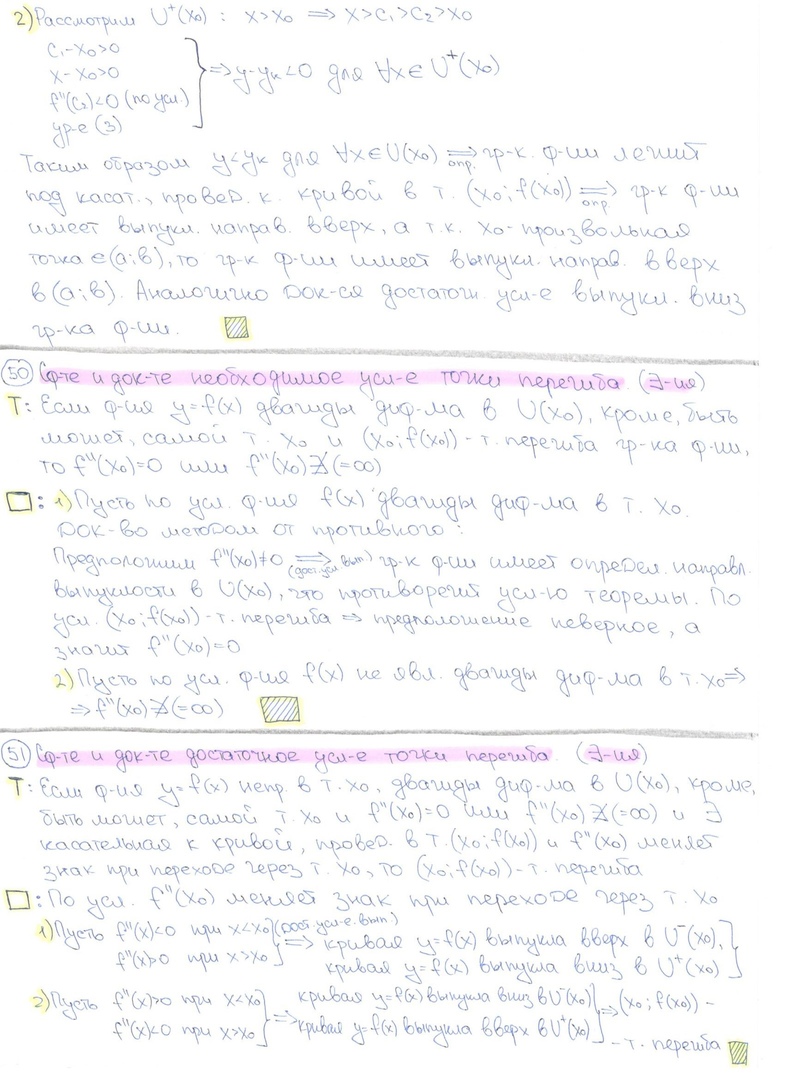 2) Рассмотрим U⁺(x₀) : x>x₀ ⟹ x>c₁>c₂>x₀
c₁-x₀>0
x-x₀>0
f''(c₂)<0 (по усл.)
ур-е (3)
⇒ y-yк<0 для ∀x∈U⁺(x₀)
Таким образом y<yк для ∀x∈U(x₀) ⟹ опр. гр-к. ф-ии лежит
под касат., провед. к. кривой в т. (x₀; f(x₀)) ⟹ опр гр-к ф-ии
имеет выпукл. направ. вверх, а т.к. x₀-произвольная
точка ∈(a;b), то гр-к ф-ии имеет выпукл. направ. вверх
в (a;b). Аналогично док-ся достаточн. усл-е выпукл. вниз
гр-ка ф-ии.
50 Сф-те и док-те необходимое усл-е точки перегиба. (∃-ия)
Т: Если ф-ия y=f(x) дважды диф-ма в U(x₀), кроме, быть
может, самой т. x₀ и (x₀; f(x₀)) - т. перегиба гр-ка ф-ии,
то f''(x₀)=0 или f''(x₀)∄(=∞)
□: 1) Пусть по усл. ф-ия f(x) дважды диф-ма в т. x₀.
Док-во методом от противного:
Предположим f''(x₀)≠0 ⟹ (дост.усл вып.) гр-к ф-ии имеет определ. направл.
выпуклости в U(x₀), что противоречит усл-ю теоремы. По
усл. (x₀; f(x₀)) - т. перегиба ⇒ предположение неверное, а
значит f''(x₀)=0
2) Пусть по усл. ф-ия f(x) не явл. дважды диф-ма в т. x₀ ⇒
⇒ f''(x₀)∄(=∞)
51 Сф-те и док-те достаточное усл-е точки перегиба. (∃-ия)
Т: Если ф-ия y=f(x) непр. в т. x₀, дважды диф-ма в U(x₀), кроме,
быть может, самой т. x₀ и f''(x₀)=0 или f''(x₀)∄(=∞) и ∃
касательная к кривой, провед. в т. (x₀; f(x₀)) и f''(x₀) меняет
знак при переходе через т. x₀, то (x₀; f(x₀)) - т. перегиба
□: По усл. f''(x₀) меняет знак при переходе через т. x₀
1) Пусть f''(x)<0 при x<x₀ (дост. усл-е. вып.) ⟹ кривая y=f(x) выпукла вверх в U⁻(x₀),
f''(x)>0 при x>x₀ кривая y=f(x) выпукла вниз в U⁺(x₀)
2) Пусть f''(x)>0 при x<x₀ ⇒ кривая y=f(x) выпукла вниз в U⁻(x₀) ⇒ (x₀; f(x₀)) -
f''(x)<0 при x>x₀ кривая y=f(x) выпукла вверх в U⁺(x₀)
- т. перегиба